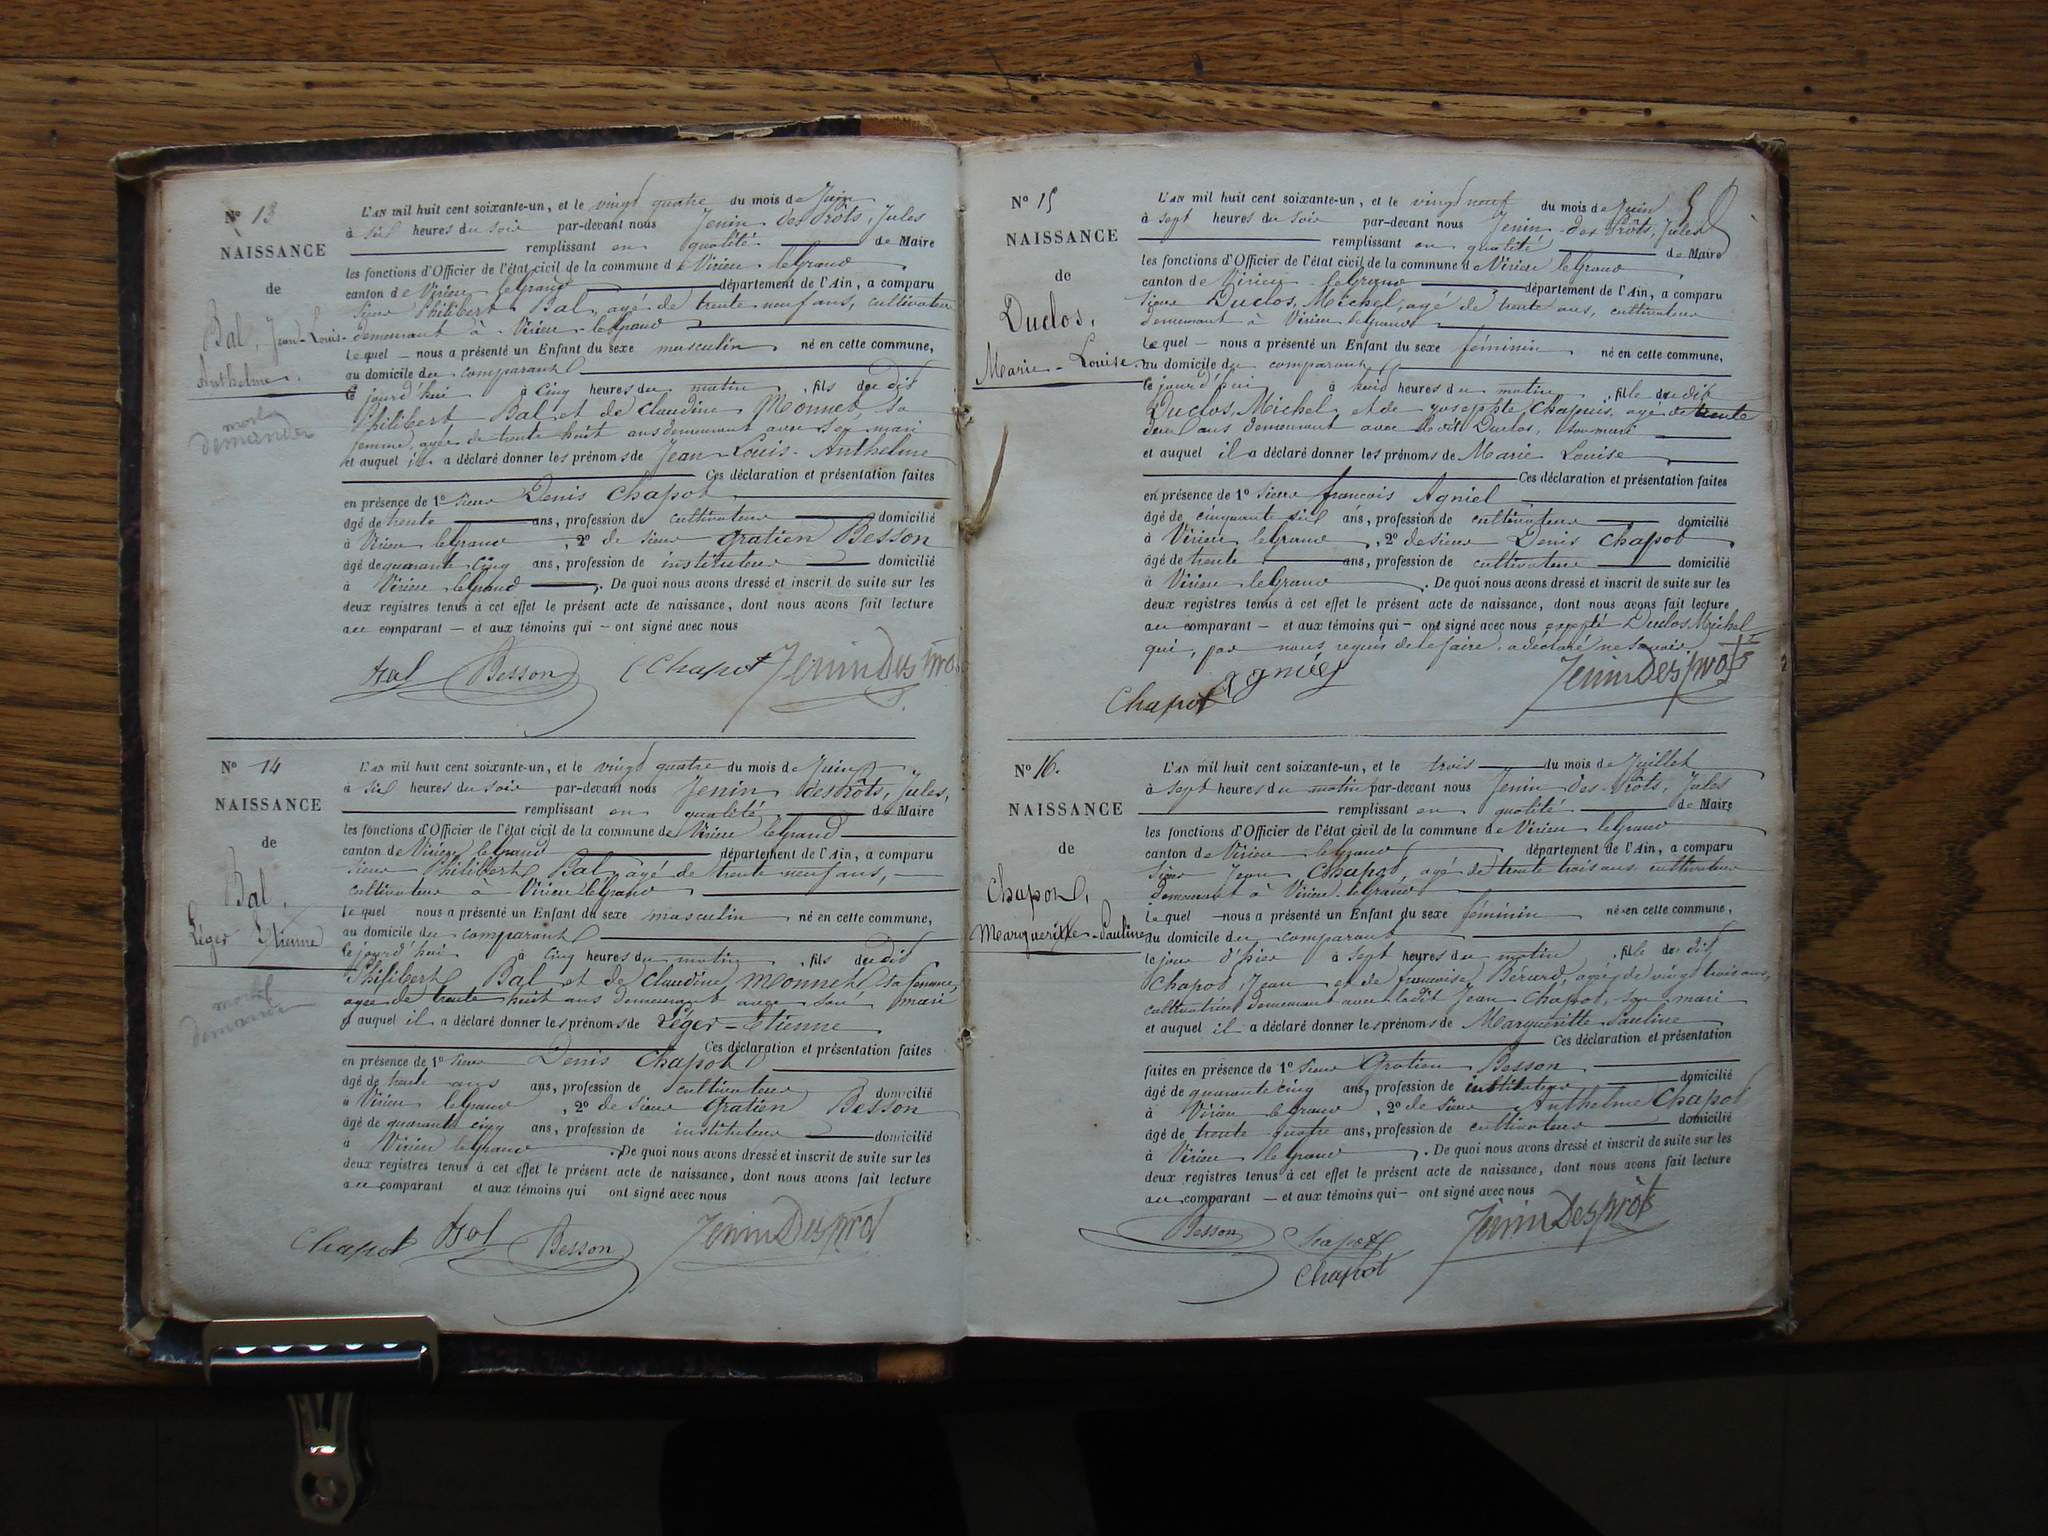 N° 13
NAISSANCE
de
Bal, Jean-Louis-
Anthelme.
mort
demander
L'AN mil huit cent soixante-un, et le vingt quatre du mois de Juin
à six heures du soir par-devant nous Jenin des Prôts, Jules
remplissant en qualité de Maire
les fonctions d'Officier de l'état civil de la commune de Virieu le Grand
canton de Virieu le Grand département de l'Ain, a comparu
Sieur Philibert Bal, agé de trente neuf ans, cultivateur
demeurant à Virieu le Grand
lequel nous a présenté un Enfant du sexe masculin né en cette commune,
au domicile du comparant
ce jourd'hui à cinq heures du matin, fils du dit
Philibert Bal et de Claudine Monnet, sa
femme, agée de trente huit ans demeurant avec son mari
et auquel il a déclaré donner les prénoms de Jean-Louis-Anthelme
Ces déclaration et présentation faites
en présence de 1° sieur Denis Chapot
âgé de trente ans, profession de cultivateur domicilié
à Virieu le Grand, 2° de sieur Gratien Besson
âgé de quarante cinq ans, profession de instituteur domicilié
à Virieu le Grand. De quoi nous avons dressé et inscrit de suite sur les
deux registres tenus à cet effet le présent acte de naissance, dont nous avons fait lecture
au comparant — et aux témoins qui — ont signé avec nous
Bal Besson Chapot Jenin Des prôts
N° 14
NAISSANCE
de
Bal,
Léger Etienne
mort
demander
L'AN mil huit cent soixante-un, et le vingt quatre du mois de Juin
à six heures du soir par-devant nous Jenin des Prôts, Jules,
remplissant en qualité de Maire
les fonctions d'Officier de l'état civil de la commune de Virieu le Grand
canton de Virieu le Grand département de l'Ain, a comparu
Sieur Philibert Bal, agé de trente neuf ans,
cultivateur à Virieu le Grand
lequel nous a présenté un Enfant du sexe masculin né en cette commune,
au domicile du comparant
ce jourd'hui à cinq heures du matin, fils du dit
Philibert Bal et de Claudine Monnet sa femme,
agée de trente huit ans demeurant avec son mari
et auquel il a déclaré donner les prénoms de Léger-Etienne
Ces déclaration et présentation faites
en présence de 1° sieur Denis Chapot
âgé de trente ans ans, profession de cultivateur domicilié
à Virieu le Grand, 2° de sieur Gratien Besson
âgé de quarante cinq ans, profession de instituteur domicilié
à Virieu le Grand. De quoi nous avons dressé et inscrit de suite sur les
deux registres tenus à cet effet le présent acte de naissance, dont nous avons fait lecture
au comparant et aux témoins qui ont signé avec nous
Chapot Bal Besson Jenin Des prôt
N° 15
NAISSANCE
de
Duclos,
Marie-Louise.
L'AN mil huit cent soixante-un, et le vingt neuf du mois de Juin
à sept heures du soir par-devant nous Jenin des Prôts, Jules
remplissant en qualité de Maire
les fonctions d'Officier de l'état civil de la commune de Virieu le Grand
canton de Virieu le Grand département de l'Ain, a comparu
sieur Duclos, Michel, agé de trente ans, cultivateur
demeurant à Virieu le Grand
lequel nous a présenté un Enfant du sexe féminin né en cette commune,
au domicile du comparant
ce jourd'hui à huit heures du matin, fille du dit
Duclos, Michel, et de Josephte Chapuis, agé de trente
deux ans demeurant avec le dit Duclos, son mari
et auquel il a déclaré donner les prénoms de Marie Louise
Ces déclaration et présentation faites
en présence de 1° sieur françois Agniel
âgé de cinquante six ans, profession de cultivateur domicilié
à Virieu le Grand, 2° de sieur Denis Chapot
âgé de trente ans, profession de cultivateur domicilié
à Virieu le Grand. De quoi nous avons dressé et inscrit de suite sur les
deux registres tenus à cet effet le présent acte de naissance, dont nous avons fait lecture
au comparant — et aux témoins qui — ont signé avec nous excepté Duclos Michel
qui, par nous requis de le faire, a déclaré ne savoir
Chapot Agniel Jenin Des prôts
N° 16.
NAISSANCE
de
Chapot,
Margueritte-Pauline
L'AN mil huit cent soixante-un, et le trois du mois de Juillet
à sept heures du matin par-devant nous Jenin Des-Prôts, Jules
remplissant en qualité de Maire
les fonctions d'Officier de l'état civil de la commune de Virieu le Grand
canton de Virieu le Grand département de l'Ain, a comparu
Sieur Jean Chapot, agé de trente trois ans cultivateur
demeurant à Virieu le Grand
lequel — nous a présenté un Enfant du sexe féminin né en cette commune,
au domicile du comparant
le jour d'hier à sept heures du matin, fille du dit
Chapot, Jean et de françoise Bérard, agée de vingt trois ans,
cultivatrice demeurant avec le dit Jean Chapot, son mari
et auquel il a déclaré donner les prénoms de Marguéritte Pauline
Ces déclaration et présentation
faites en présence de 1° sieur Gratien Besson
âgé de quarante cinq ans, profession de instituteur domicilié
à Virieu le Grand, 2° de sieur Anthelme Chapot
âgé de trente quatre ans, profession de cultivateur domicilié
à Virieu le Grand. De quoi nous avons dressé et inscrit de suite sur les
deux registres tenus à cet effet le présent acte de naissance, dont nous avons fait lecture
au comparant — et aux témoins qui — ont signé avec nous
Besson Chapot Jenin Des prôts
Chapot